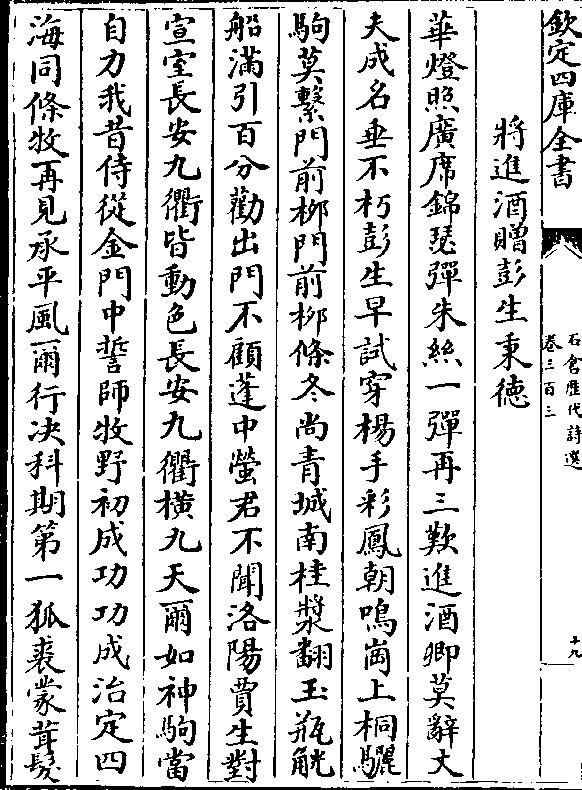 欽定四庫全書
石倉歴代詩選
卷三百三
十九
將進酒贈彭生秉徳
華燈照廣席錦瑟彈朱絲一彈再三歎進酒卿莫辭丈
夫成名垂不朽彭生早試穿楊手彩鳳朝鳴崗上桐驪
駒莫繫門前栁門前栁條冬尚青城南桂漿翻玉瓶觥
船滿引百分勸出門不顧蓬中螢君不聞洛陽賈生對
宣室長安九衢皆動色長安九衢横九天爾如神駒當
自力我昔侍從金門中誓師牧野初成功功成治定四
海同條牧再見承平風爾行决科期第一狐裘蒙茸髮